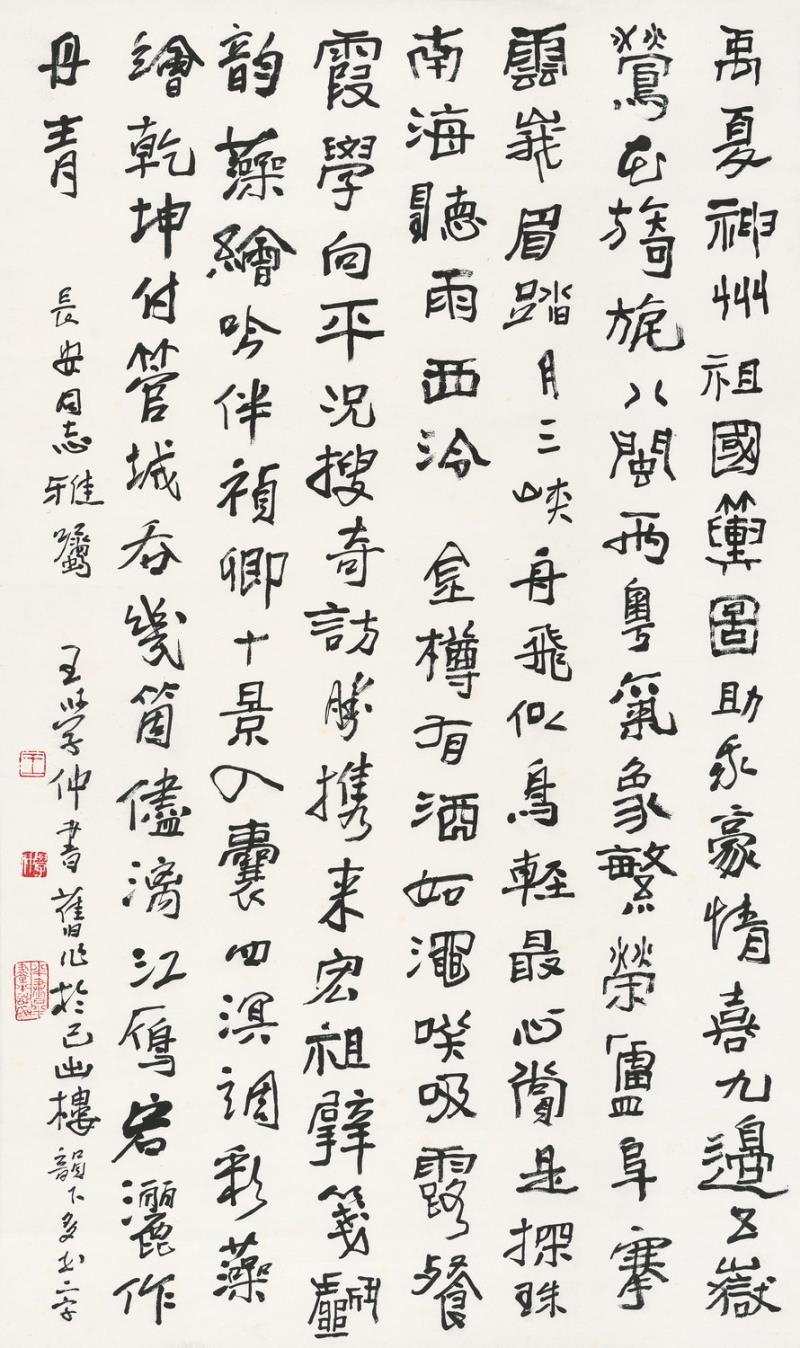 禹夏神州祖國輿圖助我豪情喜九邊五嶽
鶯花旖旎八閩兩粵氣象繁榮廬阜搴
雲峩眉踏月三峽舟飛似鳥輕最心賞是探珠
南海聽雨西泠 金樽有酒如澠嘆吸露餐
霞學向平況搜奇訪勝携来宏祖擘箋鬭
韵藻繪吟伴禎卿十景入囊四溟調彩藻
繪乾坤付管城吞幾箇儘漓江雁宕灑作
丹青
長安同志雅囑 王學仲書舊作於己出樓 韻下多出二字
王
學仲